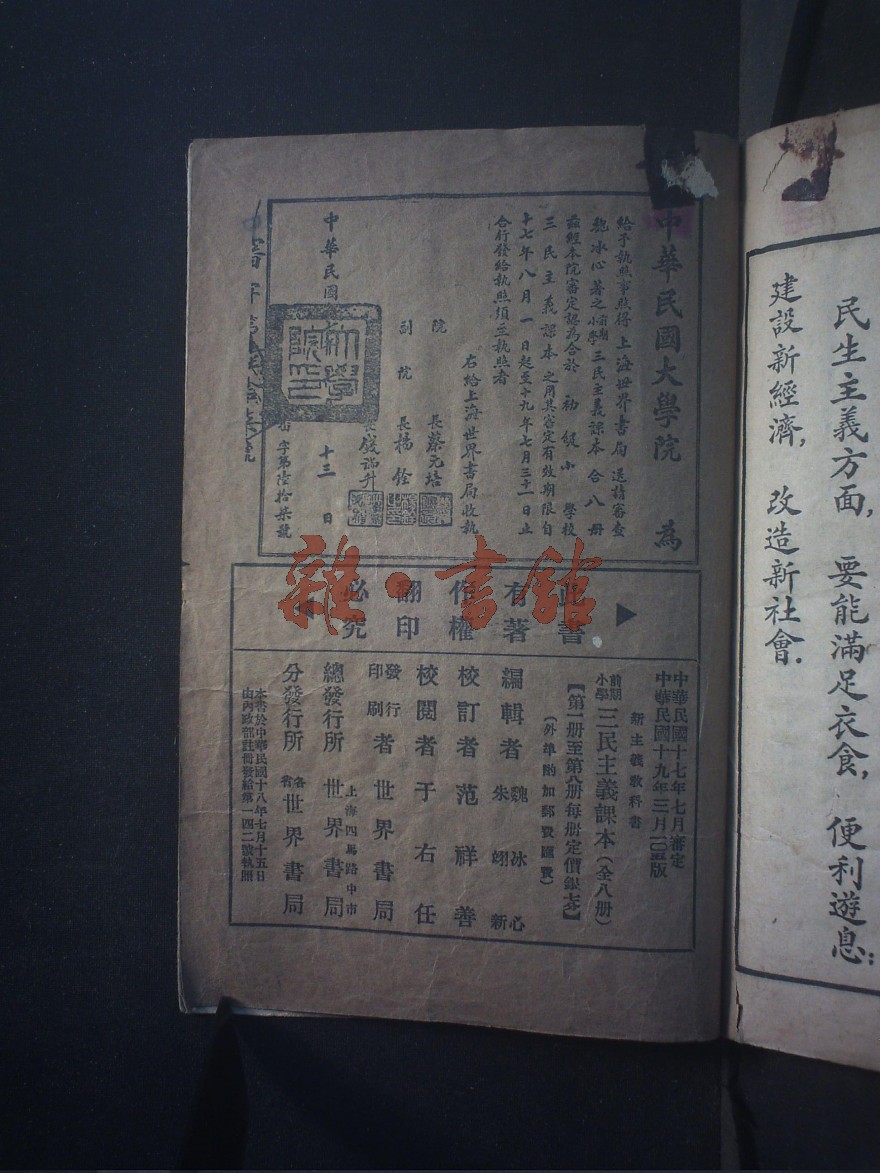 民生主義方面，要能滿足衣食，便利遊息；
建設新經濟，改造新社會．
中華民國大學院　為
給予執照事照得上海世界書局呈請審查
魏冰心著之前期小學三民主義課本合八冊
茲經本院審定認為合於初級小學校
三民主義課本之用其審定有效期限自
十七年八月一日起至十九年七月三十一日止
合行發給執照須至執照者
右給上海世界書局收執
院長蔡元培
副院長楊銓
中華民國　十三日
字第陸拾柒號
大學院印
此書有著作權翻印必究
中華民國十七年七月審定
中華民國十九年三月一〇五版
新主義教科書
前期小學三民主義課本（全八册）
【第一册至第八册每册定價銀
（外埠酌加郵費匯費）
編輯者　魏冰心　朱翊新
校訂者　范祥善
校閱者　于右任
發行印刷者　世界書局
總發行所　上海四馬路中市世界書局
分發行所　各省世界書局
本書於中華民國十八年七月十五日
由內政部註冊發給第一四二號執照
雜·書館